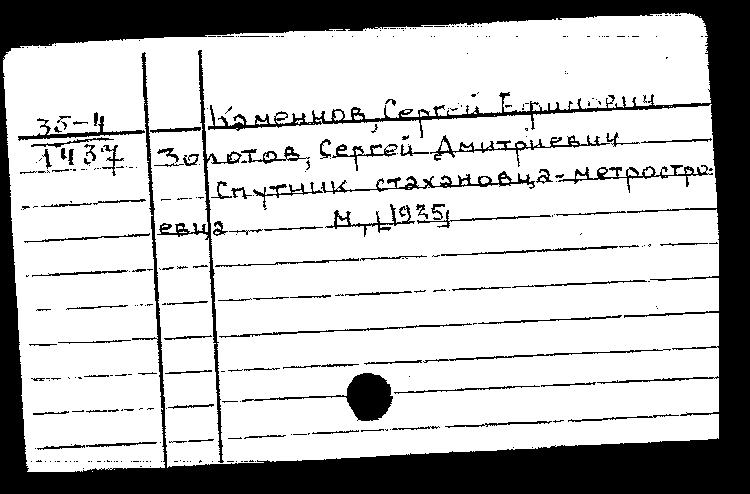 35-4
1437
Каменнов, Сергей Ефимович
Золотов, Сергей Дмитриевич
Спутник стахановца-метростро-
евца М., [1935]